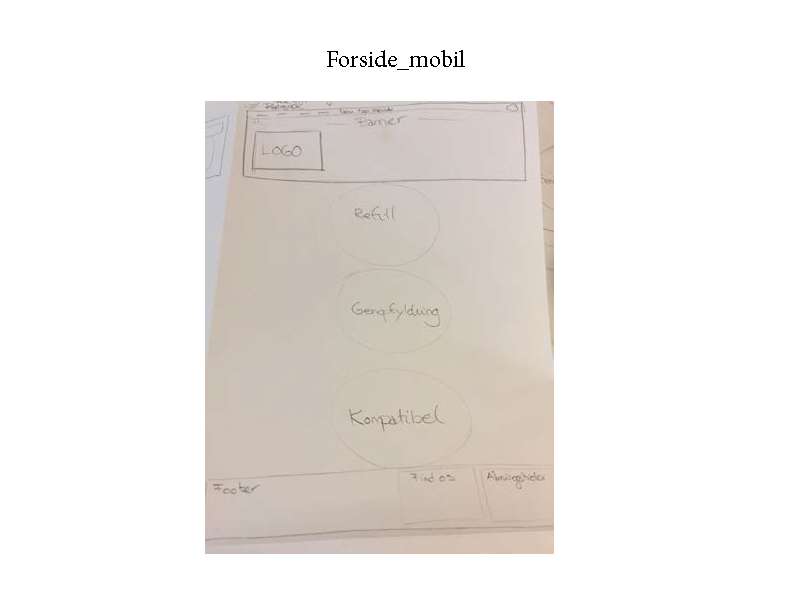 Forside_mobil
Banner
LOGO
Refill
Genopfyldning
Kompatibel
Footer
Find os
Åbningstider